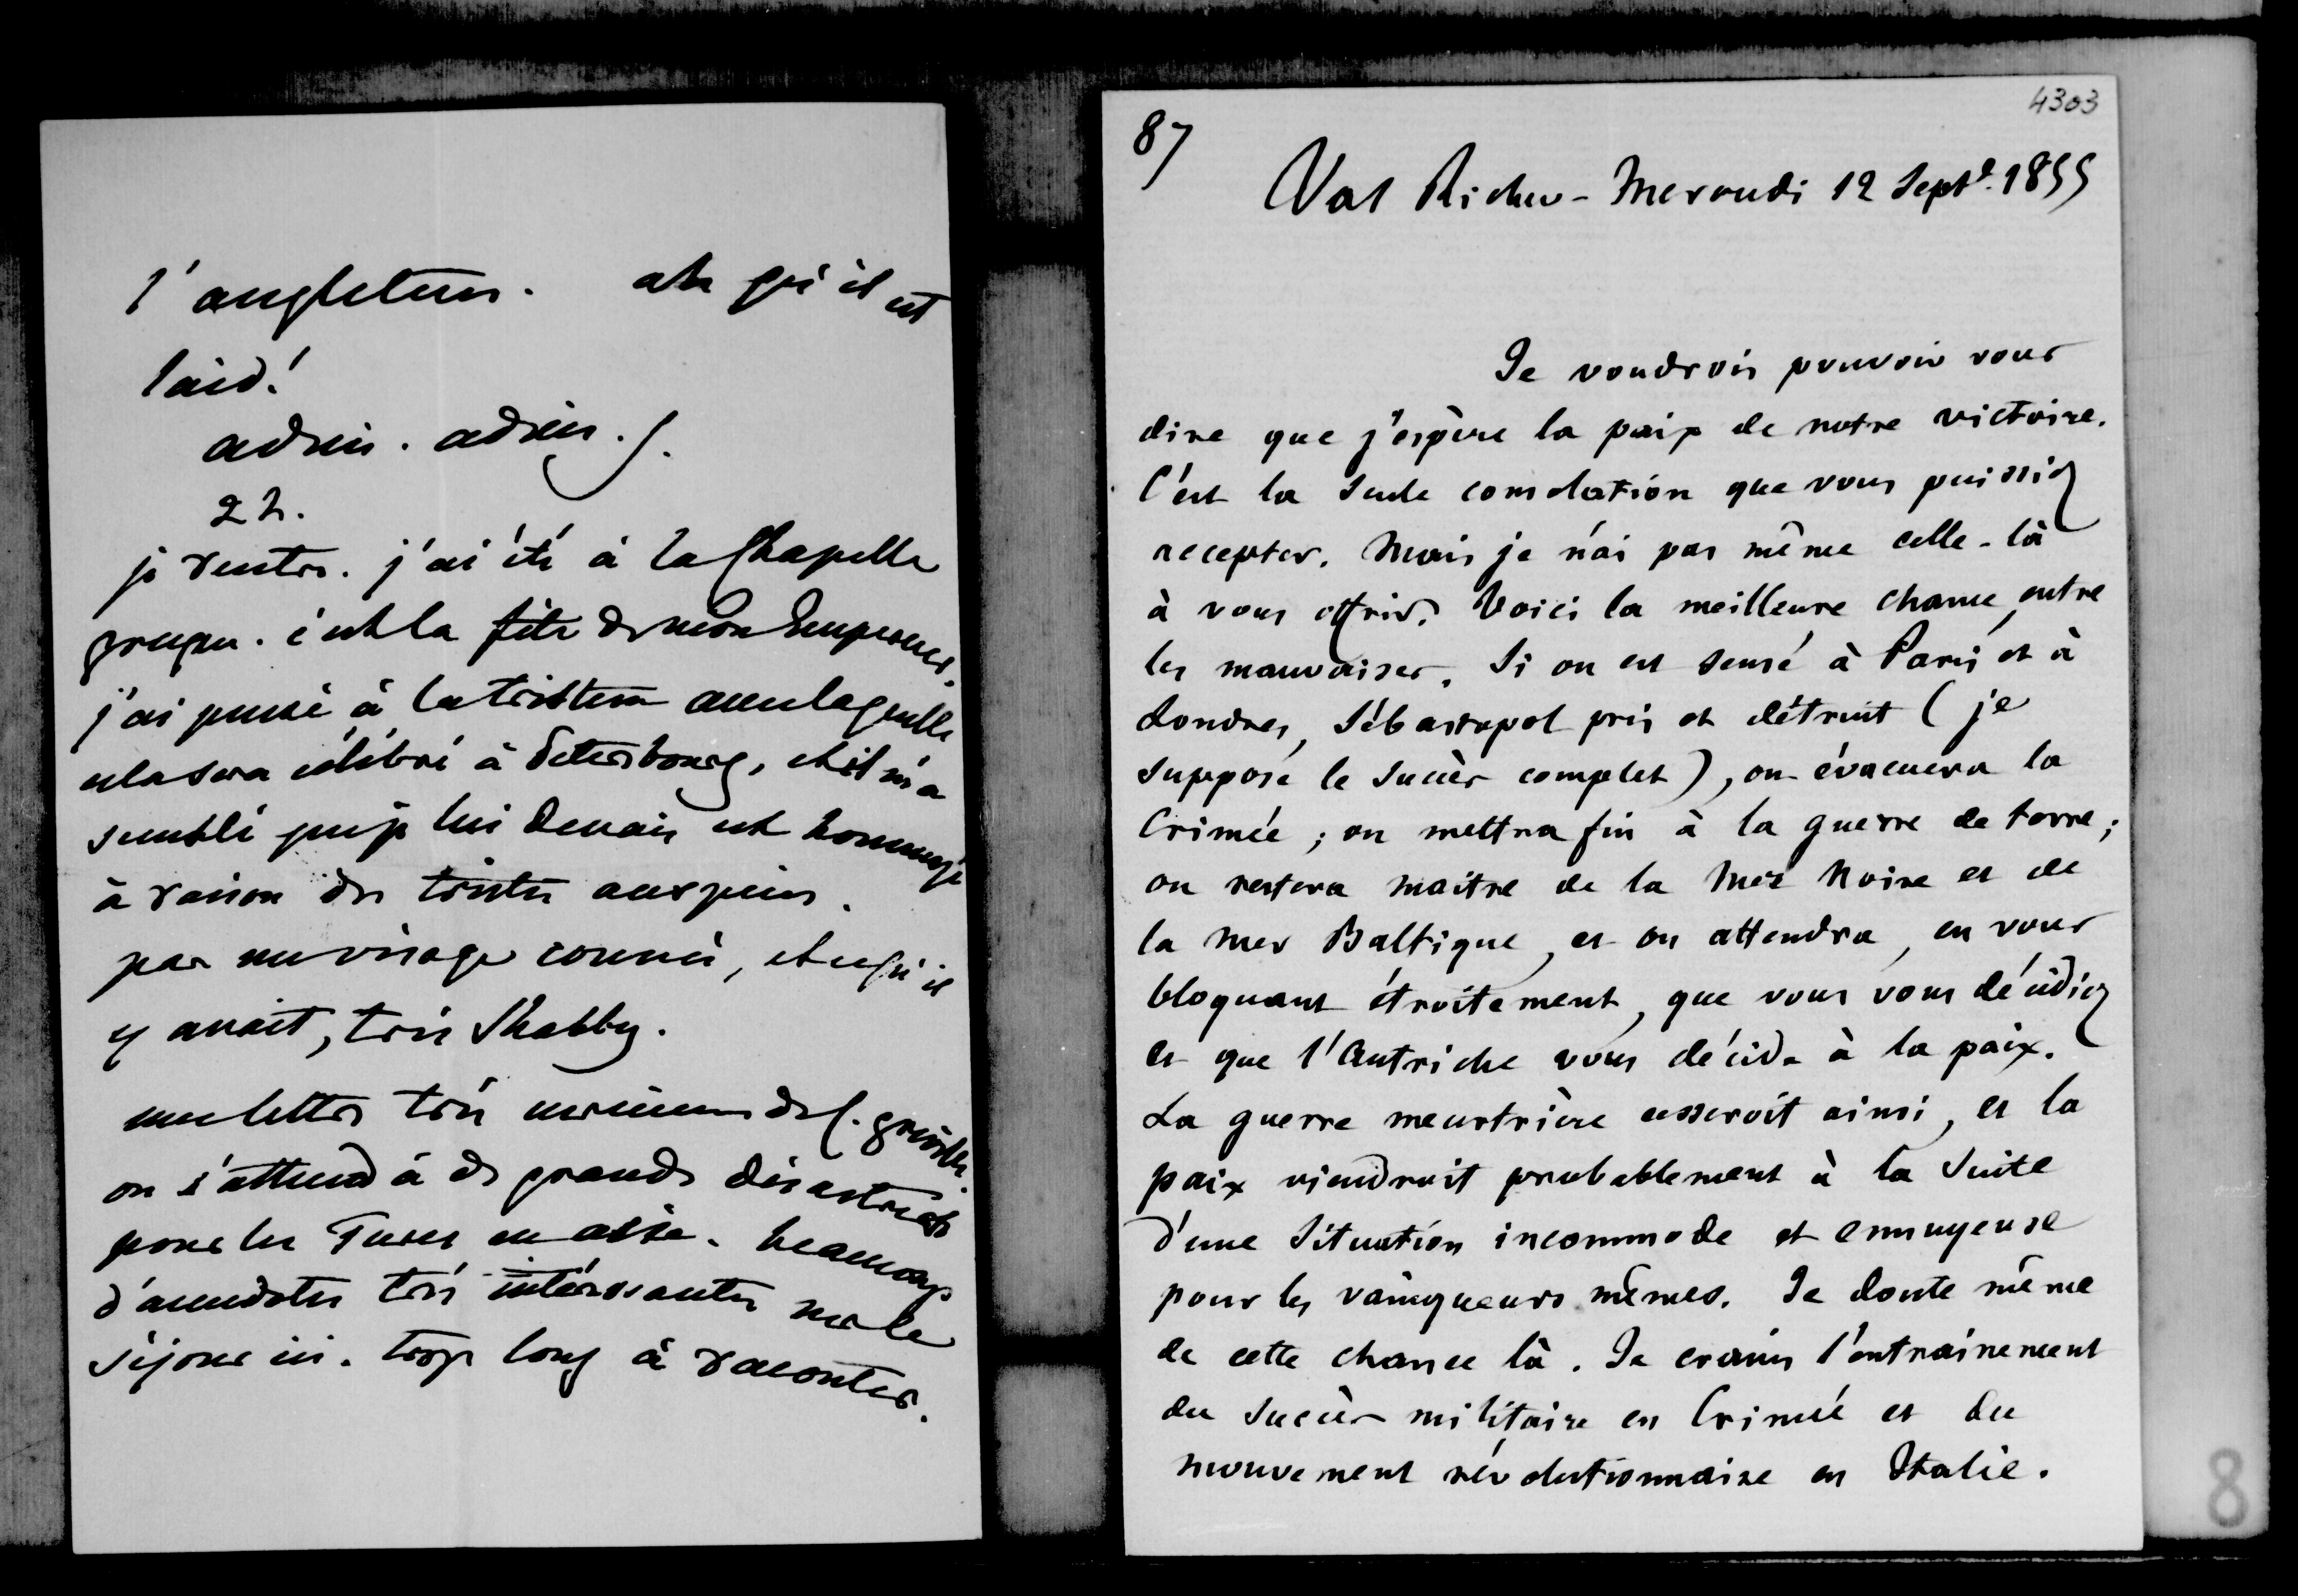 l'angleterre. ah qu'il est
laid!
adieu. adieu.
2 h.
je rentre. j'ai été à la Chapelle
grecque. c'est la fête de mon Empereur.
j'ai pensé à la tristesse avec laquelle
cela sera célébré à Petersbourg, et il m'a
semblé que je lui devais cet hommage
à raison des tristes auspices.
pas un visage connu, et ce qu'il
y avait, très Shabby.
une lettre très curieuse de C. Gréville.
on s'attend à de grands désastres
pour les Turcs en asie. beaucoup
d'anecdotes très intéressantes sur le
séjour ici. trop long à raconter.
4303
87
Val Richer - Mercredi 12 Septe. 1855
Je voudrois pouvoir vous
dire que j'espère la paix de notre victoire.
C'est la seule consolation que vous puissiez
accepter. Mais je n'ai pas même celle-là
à vous offrir. Voici la meilleure chance, entre
les mauvaises. Si on est sensé à Paris et à
Londres, Sébastopol pris et détruit (je
suppose le succès complet), on évacuera la
Crimée ; on mettra fin à la guerre de terre ;
on restera maitre de la Mer Noire et de
la mer Baltique, et on attendra, en vous
bloquant étroitement, que vous vous décidiez
et que l'Autriche vous décide à la paix.
La guerre meurtrière cesseroit ainsi, et la
paix viendroit probablement à la suite
d'une situation incommode et ennuyeuse
pour les vainqueurs mêmes. Je doute même
de cette chance là. Je crains l'entrainement
du succès militaire en Crimée et du
mouvement révolutionnaire en Italie.
8